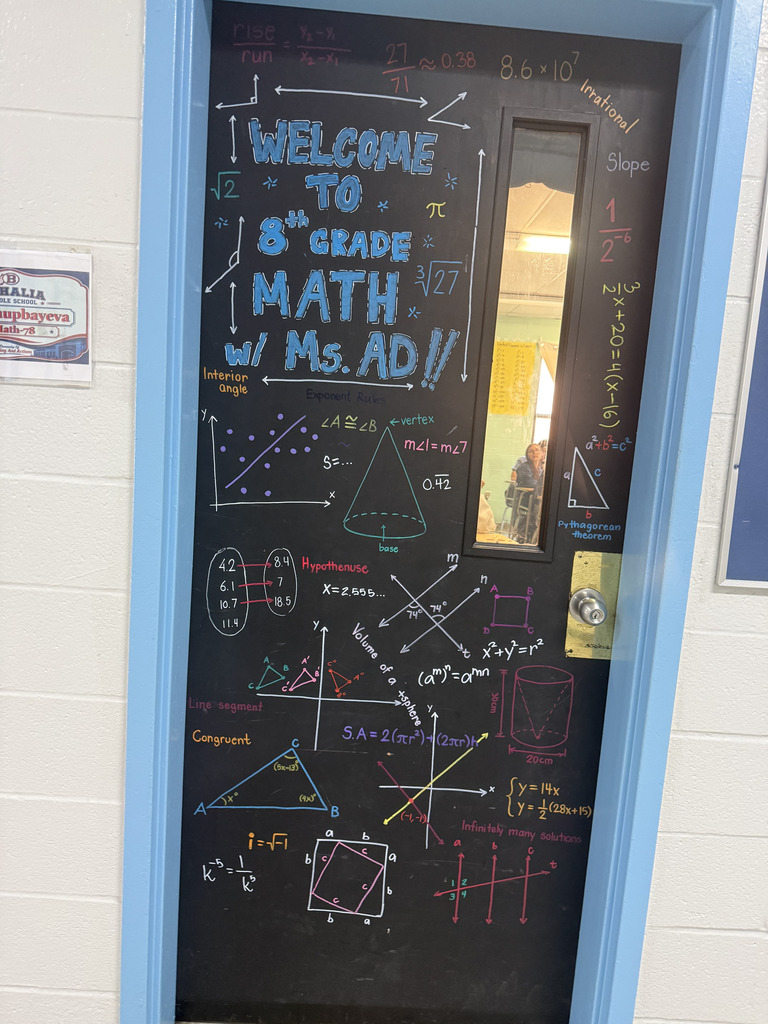 rise/run = y₂-y₁/x₂-x₁
27/71 ≈ 0.38
8.6 × 10⁷
Irrational
WELCOME
TO
8th GRADE
MATH
w/ Ms. AD!!
√2
π
³√27
Slope
1/2⁻⁶
3/2x+20=4(x-16)
HALIA
OLE SCHOOL
upbayeva
Math-78
Interior
angle
Exponent Rules
y
x
∠A ≅ ∠B
S=...
vertex
m∠1 = m∠7
0.42̅
base
a²+b²=c²
a
c
b
Pythagorean
theorem
4.2
6.1
10.7
11.4
8.4
7
18.5
Hypothenuse
X=2.555...
m
n
74°
74°
t
A
B
D
C
x²+y²=r²
(aᵐ)ⁿ=aᵐⁿ
Volume of a sphere
y
A
B
C
A'
B'
C'
C"
A"
B"
Line segment
30cm
20cm
S.A = 2(πr²)+(2πr)h
Congruent
C
(5x-13)°
A
x°
(4x)°
B
y
x
(-1,-1)
y=14x
y=1/2(28x+15)
Infinitely many solutions
i=√-1
k⁻⁵=1/k⁵
a
b
b
a
c
c
c
c
a
b
b
a
a
b
c
t
1 2
3 4